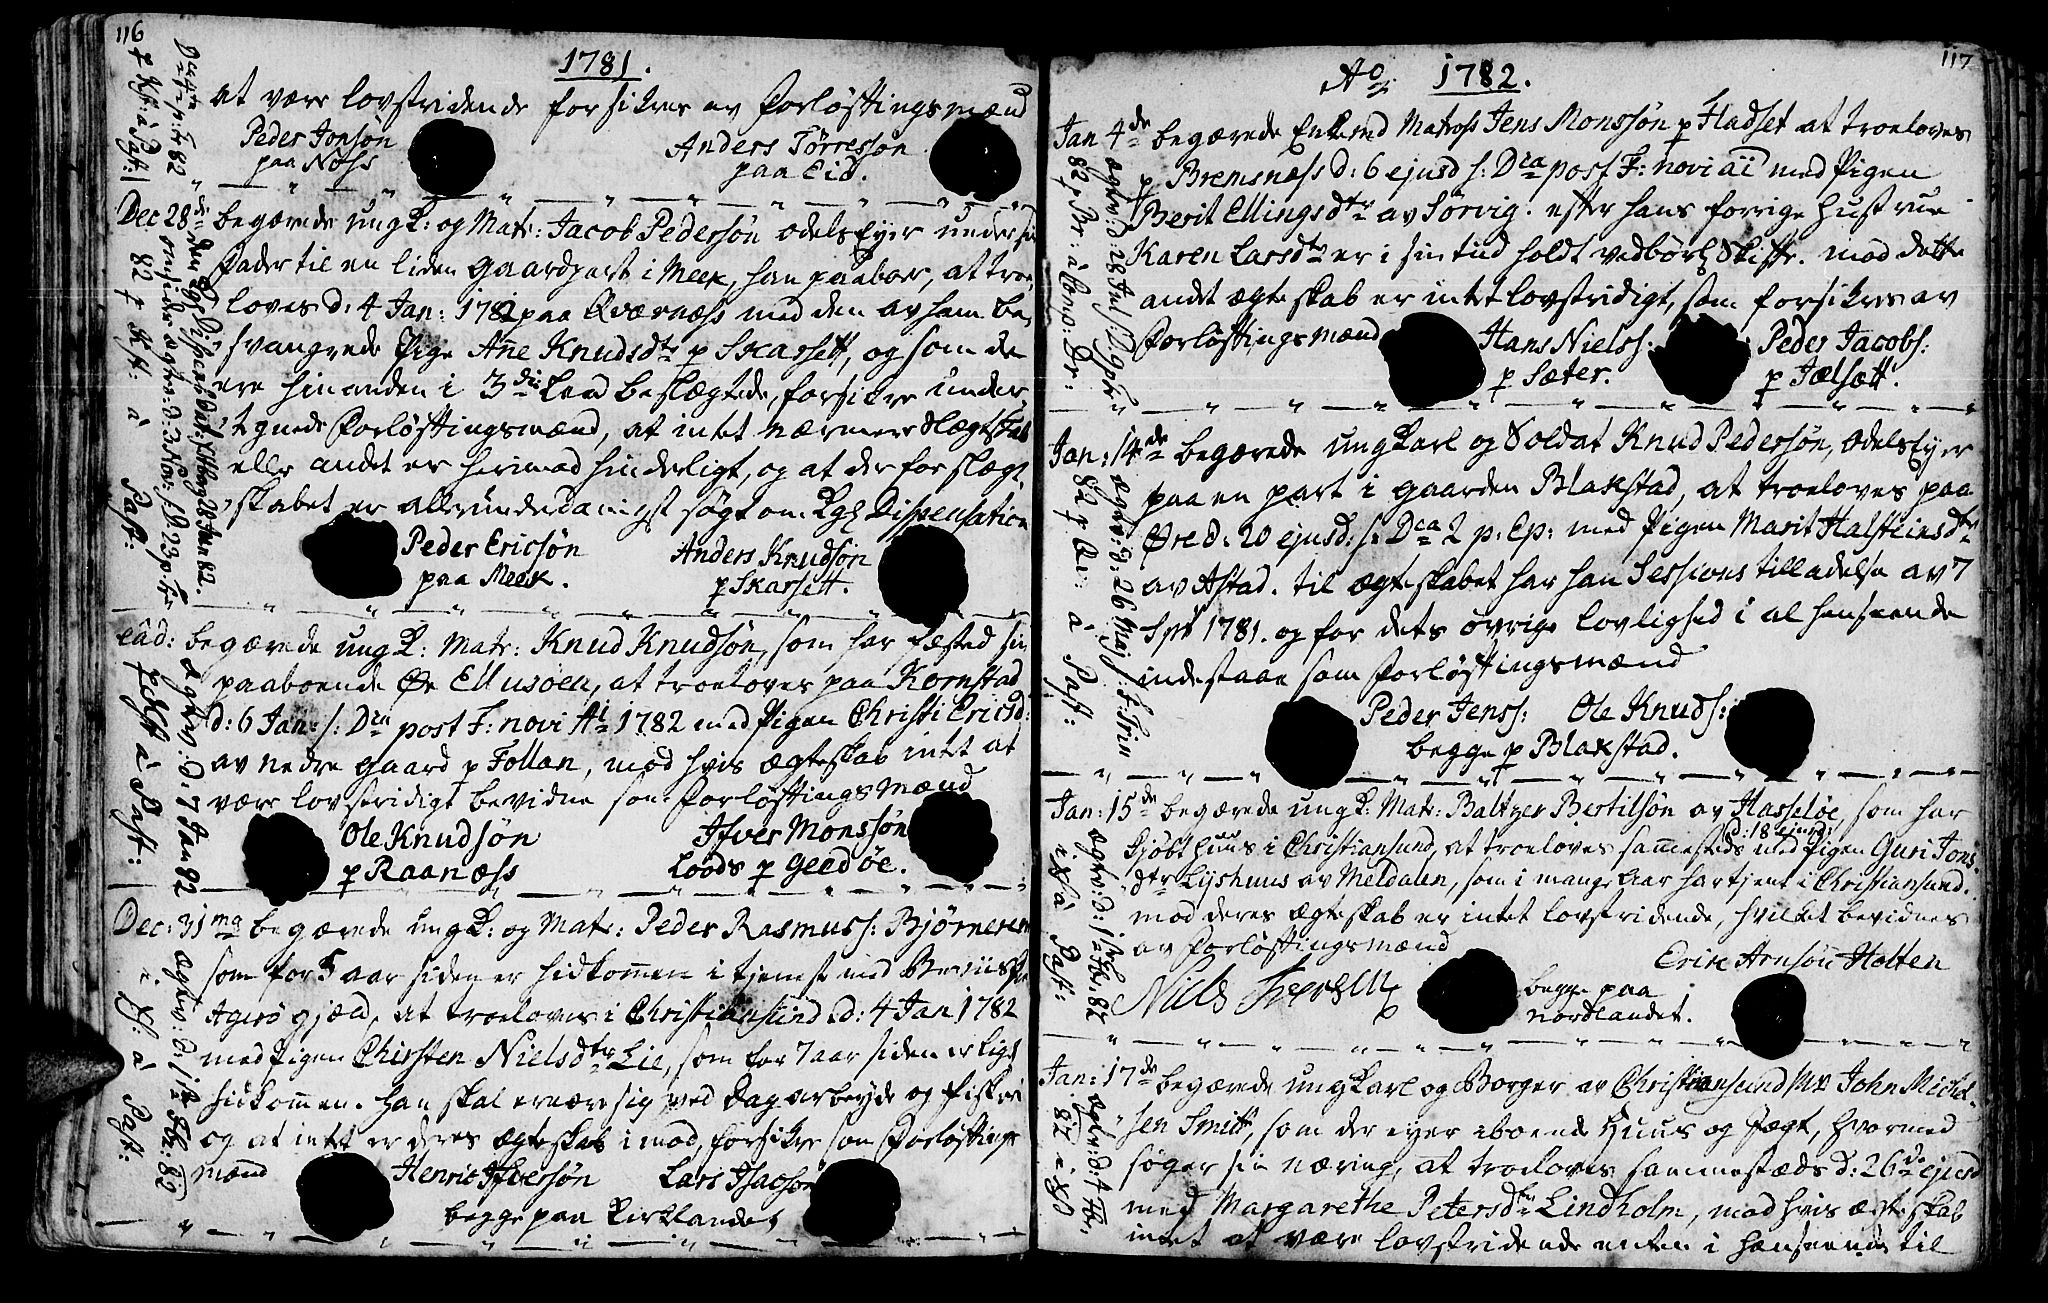 116
1781.
at være lovstridende forsikres av Forløftingsmænd
Peder Jonsøn
paa Noss
Anders Tørresson
paa Eid.
Dec 28de begærede ungk: og Matr: Jacob Pedersøn odelsEyer under sin
Fader til en liden Gaardpart i Meek, han paaboer, at troe,
loves d: 4 Jan: 1782 paa Qværness med den av ham be,
svangrede Pige Añe Knudsdtr p Skarsett, og som de
ere hinanden i 3die Leed beslægtede, forsikre under,
tegnede Forløftingsmænd, at intet nærmere Slegtskab
eller andet er herimod hinderligt, og at der for slægt,
skabet er allerunderdanigst søgt om Kgl Dispensation
Peder Ericsøn
paa Meek.
Anders Knudsøn
p Skarsett.
ead: begærede ungk: Matr: Knud Knudsøn, som har fæsted sin
paaboende Øe Ellusøen, at troeloves paa Kornstad
d: 6 Jan: s: Dca post F: novi Ai 1782 med Pigen Christi Ericsd:
av nedre gaard p Follan, mod hvis ægteskab intet at
være lovstridigt bevidne som Forløftingsmænd
Ole Knudsøn
p Raanæss
Ifver Monssøn
Loods p Geedøe.
Dec: 31ma begærede ungk: og Matr: Peder Rasmuss: Bjørneren
som for 5 aar siden er hidkom̃en i tjeneste med
Agerø gjæld, at troeloves i Christiansund d: 4 Jan 1782
med Pigen Chirsten Nielsdtr Lie, som for 7 aar siden er lige
hidkom̃en. han skal ernære sig ved Dagarbeyde og Fiskeri
og at intet er deres ægteskab imod, forsikre som Forløftings
mænd
Henric Ifversøn
Lars Isacsøn
begge paa Kirklandet
117
Ao 1782.
Jan 4de begærede Enkemd Matross Jens Monssøn p Hadset at troeloves
p Bremsnæss d: 6 ejusd s: Dca post F: novi ai med Pigen
Berit Ellingsdtr av Sørvig. efter hans forrige hustrue
Karen Larsdtr er i sin tiid holdt vedbørl Skifte. mod dette
andet ægteskab er intet lovstridigt, som forsikres av
Forløftingsmænd
Hans Nielss:
p Sæter.
Peder Jacobs:
p Jælsætt.
Jan: 14de begærede ungkarl og Soldat Knud Pedersøn, OdelsEyer
paa en part i gaarden Blakstad, at troeloves paa
Øre d: 20 ejusd: s: Dca 2 p: Ep: med Pigen Marit Halsteinsdtr
av Astad. til ægteskabet har han Sessions tilladelse av 7
Sptr 1781. og for dets øvrige lovlighed i al henseende
indestaae som Forløftingsmænd
Peder Jenss: Ole Knuds:
begge p Blakstad.
Jan: 15de begærede ungk: Matr: Baltzer Bertilsøn av Hasseløe, som har
kjøbt huus i Christiansund, at troeloves sam̃esteds d: 18 ejusd: med Pigen Guri Jons
dtr Lijshuus av Meldalen, som i mange Aar har tjent i Christiansund.
mod deres ægteskab er intet lovstridende, hvilket bevidnes
av Forløftingsmænd
Erik Arnsøn Holten
Niels
begge paa
nordlandet.
Jan: 17de begærede ungkarl og Borger av Christiansund Mr John Michel,
sen Smitt, som der eyer iboende Huus og Fægt, hvormed
søger sin næring, at troeloves sammestæds d: 26de ejusd
med Margarethe Petersdtr Lindholm, mod hvis ægteskab
intet at være lovstridende enten i henseende til